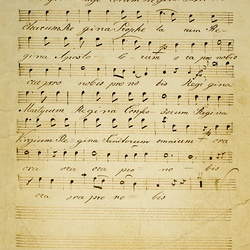 charum Regina Prophetarum Re-
gina Aposto- lo rum ora pro nobis
ora pro nobis pro no bis Regina
Martyrum Regina Confessorum Regina
Virginum Re- gina Sanctorum omnium ora
ora ora ora pro no - bis
ora ora pro no - bis